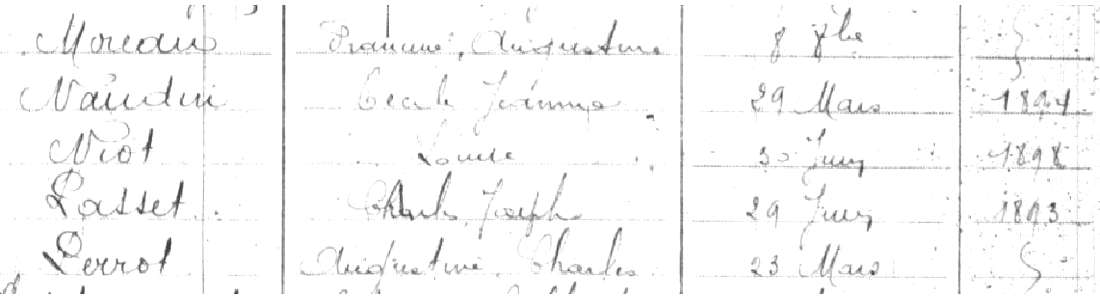 Moreau Francine, Augustine 8 7bre
Naudin Cécile Jeanne 29 Mars 1894
Niot Louise 30 Juin 1898
Passet Charles Joseph 29 Juin 1893
Perrot Augustine Charles 23 Mars